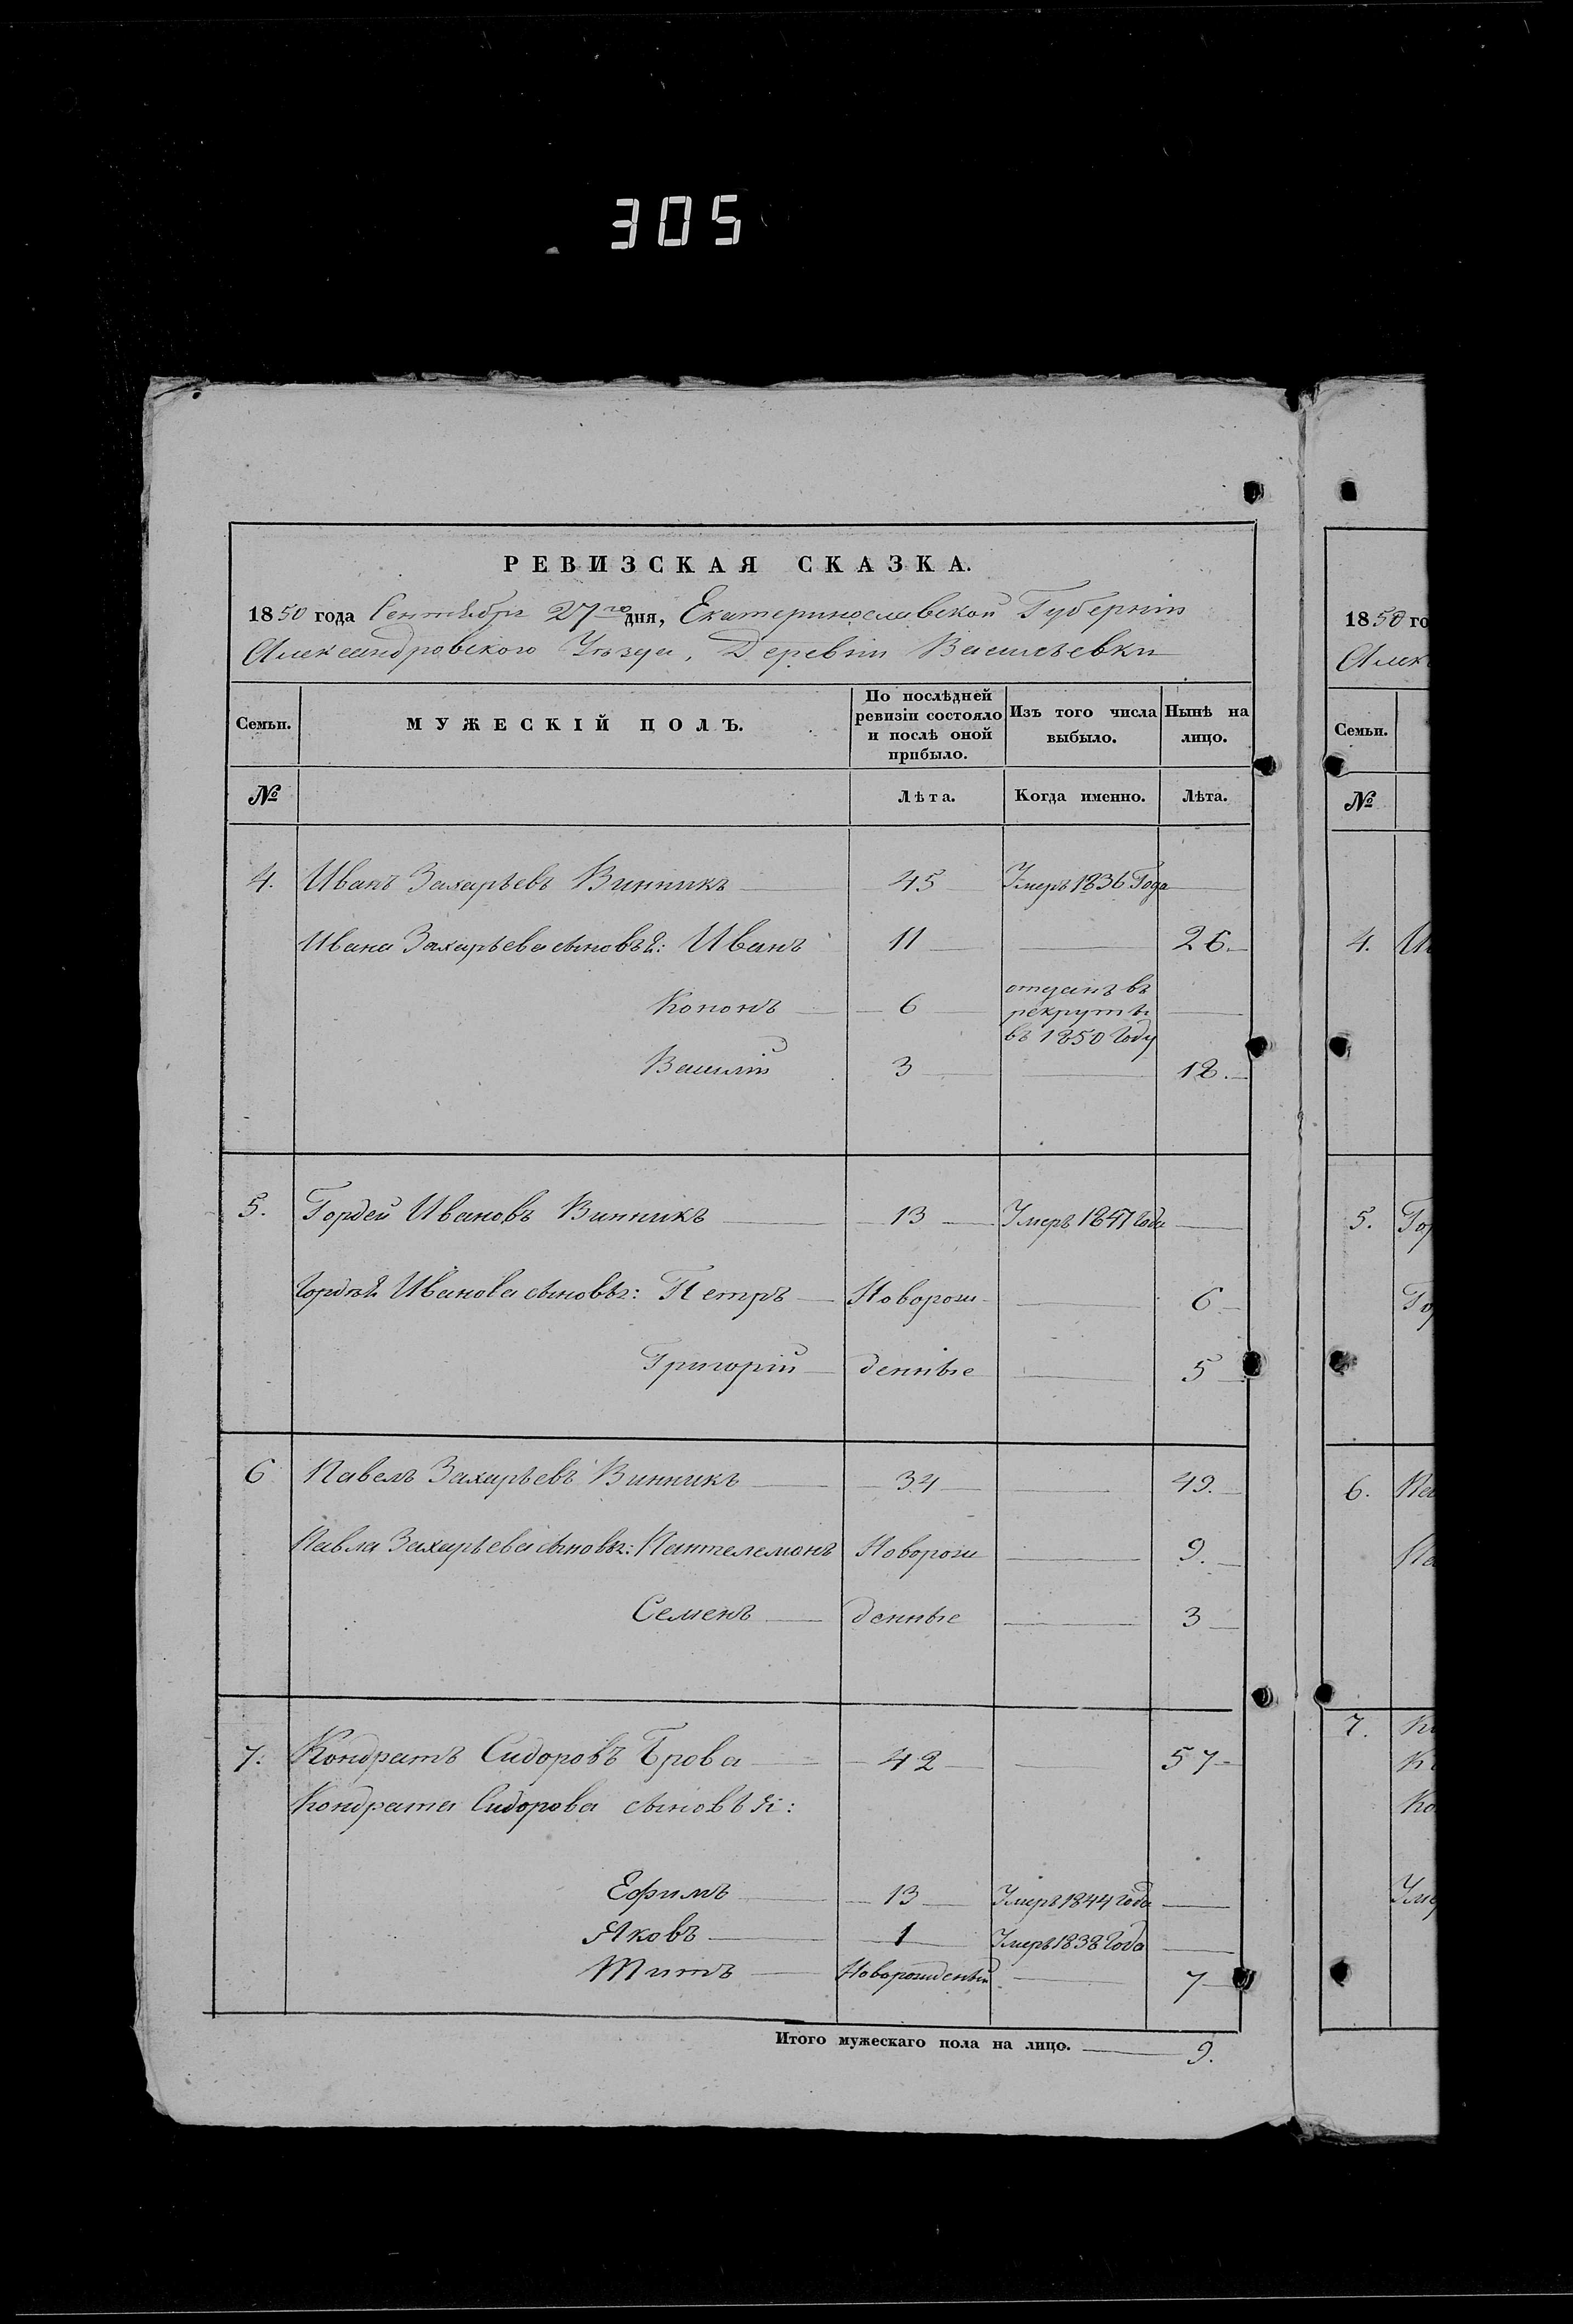 305
РЕВИЗСКАЯ СКАЗКА.
1850 года Сентября 27го дня, Екатеринославской Губерніи
Александровского Уѣзда, Деревни Васильевки
Семьи.
МУЖЕСКІЙ ПОЛЪ.
По послѣдней ревизіи состояло и послѣ оной прибыло.
Изъ того числа выбыло.
Нынѣ на лицо.
№
Лѣта.
Когда именно.
Лѣта.
4. Иванъ Захарьевъ Винникъ 45 Умеръ 1836 Года
Ивана Захарьева сыновья: Иванъ 11 26.
Кононъ 6 отданъ въ рекруты въ 1850 Году
Василій 3 18.
5. Гордей Ивановъ Винникъ 13 Умеръ 1847 Года
Гордѣя Иванова сыновья: Петръ Новорож 6
Григорій денные 5
6 Павелъ Захарьевъ Винникъ 34 49.
Павла Захарьева сыновья: Пантелемонъ Новорож 9.
Семенъ денные 3
7. Кондратъ Сидоровъ Брова 42 57
Кондрата Сидорова сыновья:
Ефимъ 13 Умеръ 1844 года
Яковъ 1 Умеръ 1838 Года
Титъ Новорожденый 7
Итого мужескаго пола на лицо. 9.
1850 го
Алек
Семьи.
№
4. Ив
5. Гор
Го
6. Па
Па
7. Ко
К
Ко
Уме